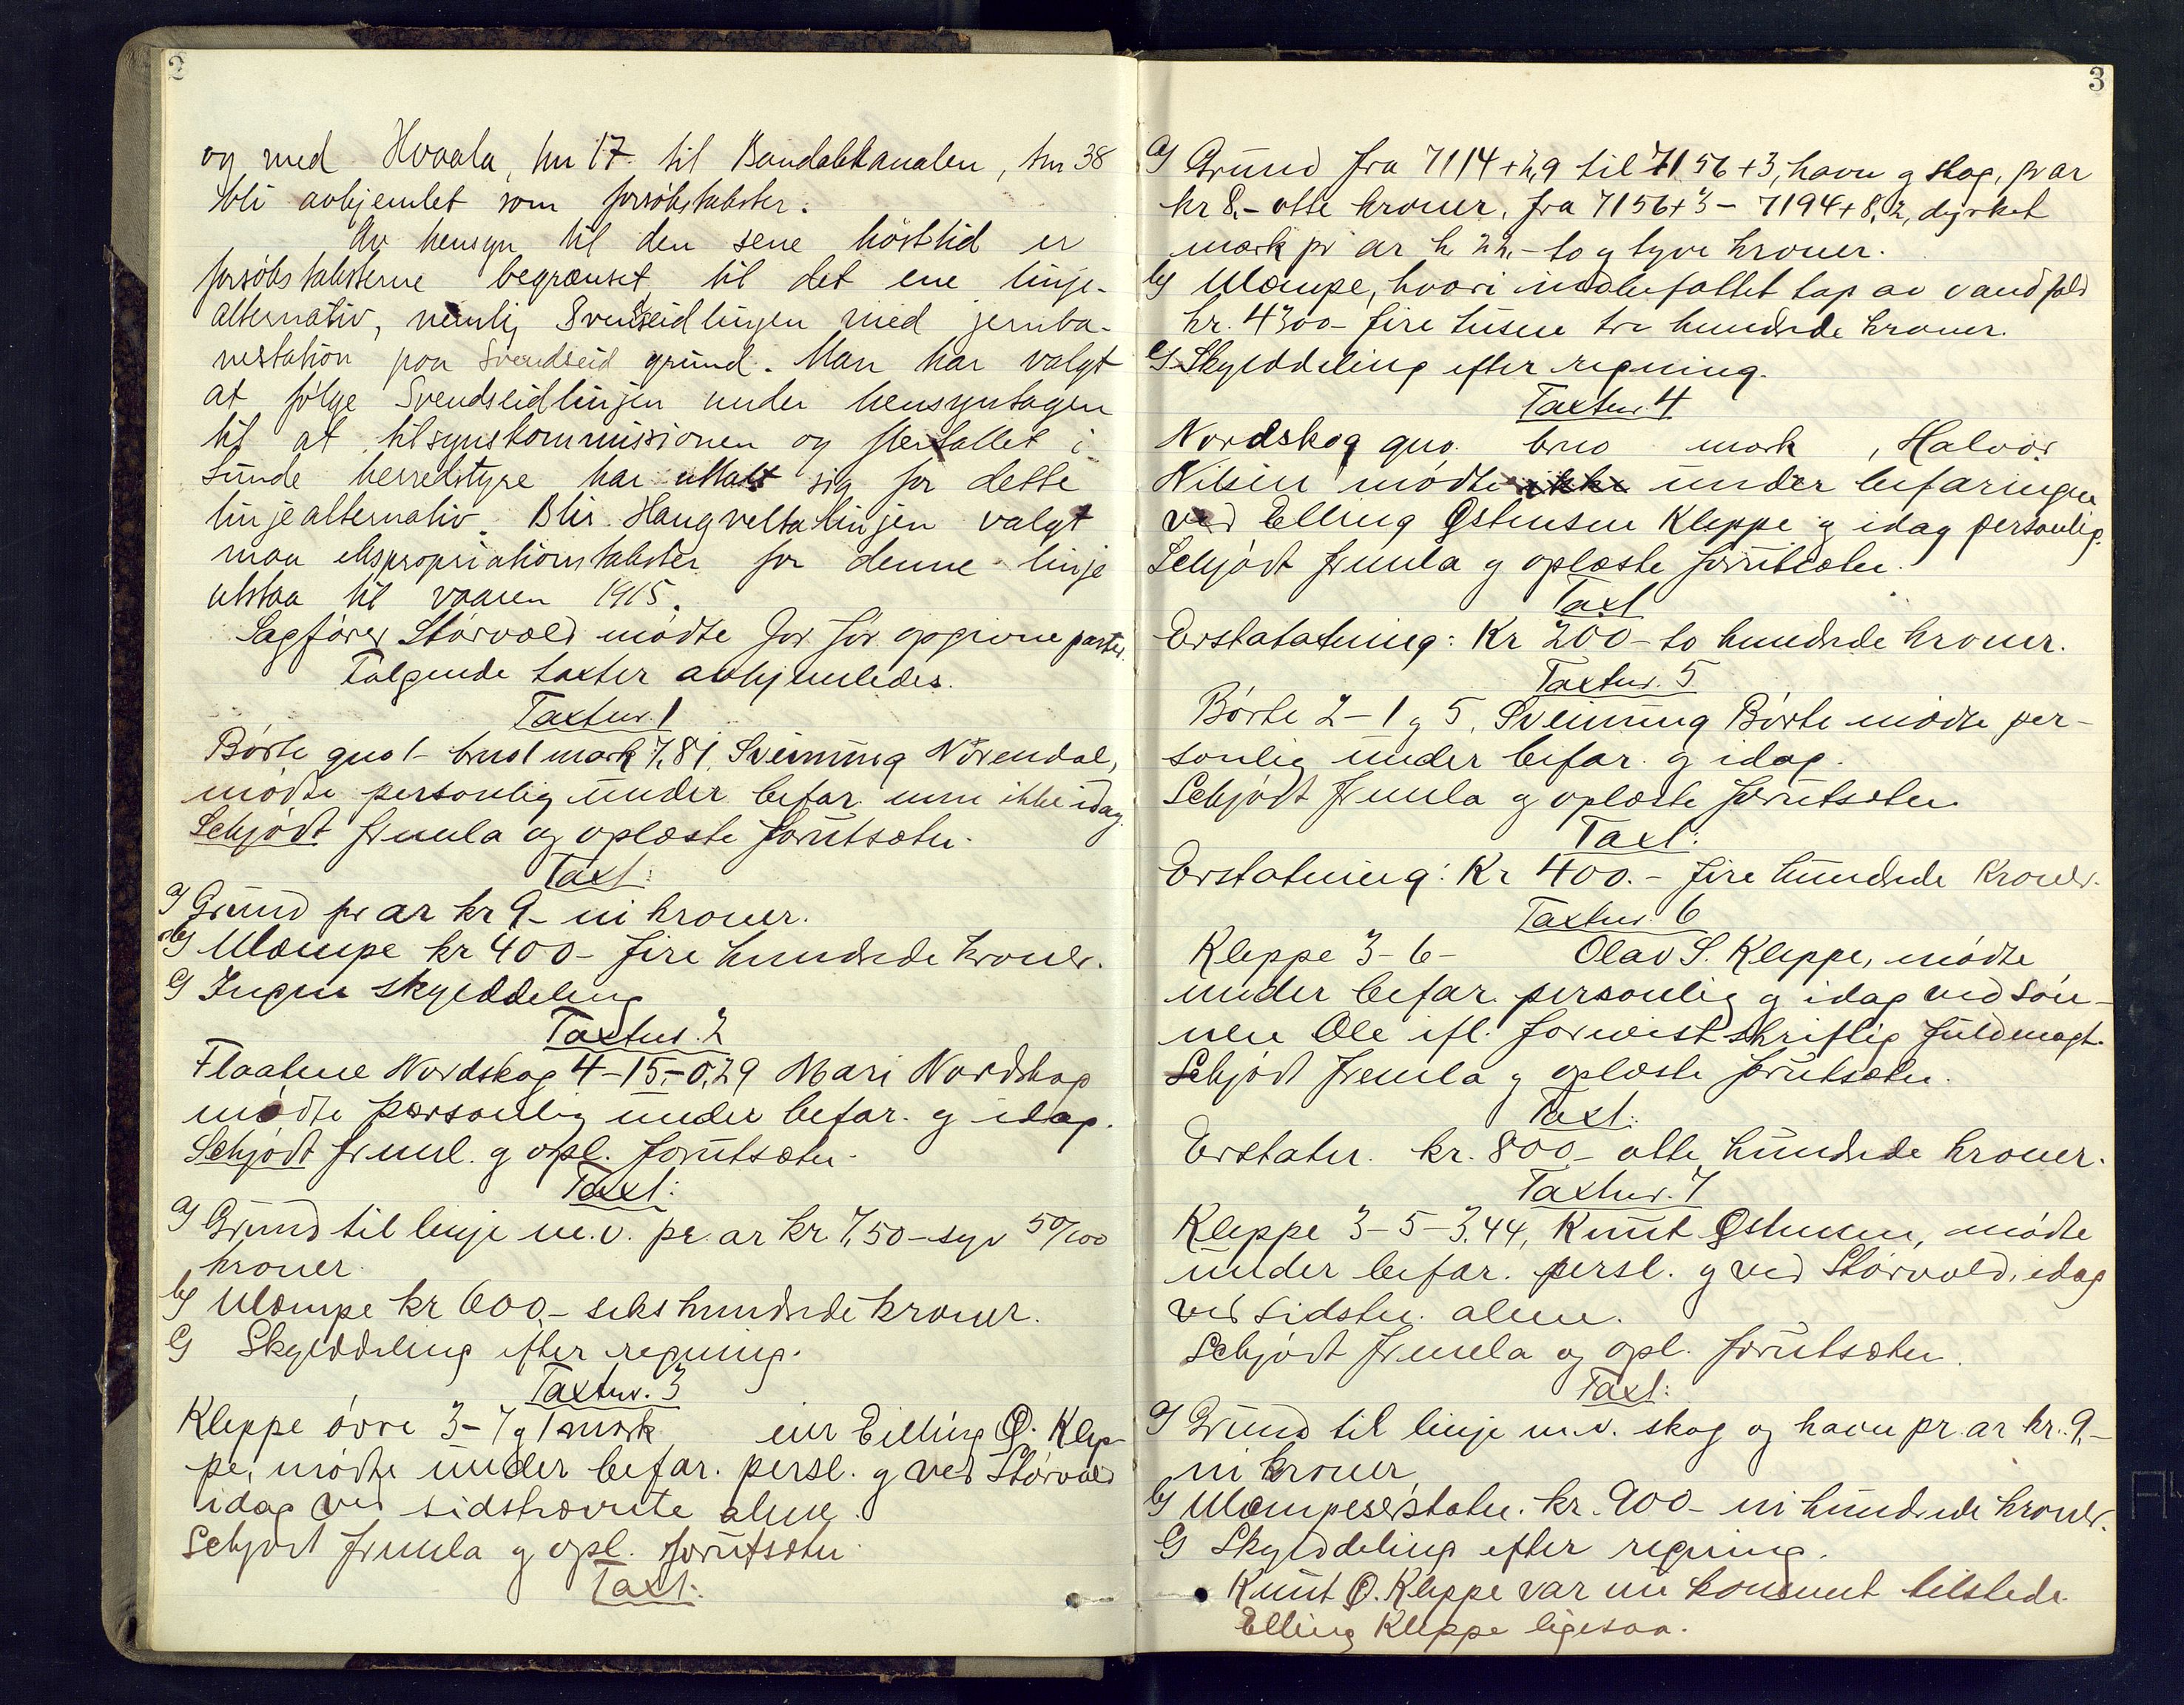 2
og med Hvaala, tnr 17 til Bandakkanalen, tnr 38
bli avhjemlet som forsökstakster.
Av hensyn til den sene hösttid er
forsökstaksterne begrænset til det ene linje-
alternativ, nemlig Svendseidlinjen med jernba-
nestation paa Svendseid grund. Man har valgt
at fölge Svendseidlinjen under hensyntagen
til at tilsynskommissionen og flertallet i
Lunde herredstyre har uttalt sig for dette
linjealternativ. Blir Haugveltalinjen valgt
maa ekspropriationstakster for denne linje
utstaa til vaaren 1915.
Sagförer Störvold mödte for för opgivne parter.
Følgende taxter avhjemledes.
Taxtnr. 1
Börte gno 1 - brno 1 mark 7,81, Sveinung Nörendal,
mödte personlig under befar. men ikke idag.
Schjödt fremla og oplæste forutsætn.
Taxt:
a) Grund pr ar kr 9 - ni kroner.
b) Ulæmpe kr 400 - fire hundrede kroner.
c) Ingen skylddeling
Taxtnr. 2
Flaatene Nordskog 4-15-0,29 Mari Nordskog
mödte personlig under befar. og idag.
Schjödt freml. og opl. forutsætn.
Taxt:
a) Grund til linje m.v. pr. ar kr. 7,50 - syv 50/100
kroner.
b) Ulæmpe kr 600,- seks hundrede kroner.
c) Skylddeling efter regning.
Taxtnr. 3
Kleppe övre 3-7 og 1 mark eier Elling Ø. Klep-
pe, mödte under befar. persl. og ved Störvold
idag ved sidstnævnte alene.
Schjödt fremla og opl. forutsætn.
Taxt:
3
a) Grund fra 7114+2,9 til 7156+3, havn og skog, pr ar
kr 8,- otte kroner, fra 7156+3 - 7194+8,2, dyrket
mark pr ar kr 22,- to og tyve kroner.
b) Ulæmpe, hvori indbefattet tap av vandfald
kr. 4300 - fire tusen tre hundrede kroner.
c) Skylddeling efter regning.
Taxtnr. 4
Nordskog gno. brno mark , Halvor
Nilsen mödte ikke under befaringen
ved Elling Østensen Kleppe og idag personlig.
Schjödt fremla og oplæste forutsætn.
Taxt
Erstatatning: Kr 200 - to hundrede kroner.
Taxtnr. 5
Börte 2-1 og 5, Sveinung Börte mödte per-
sonlig under befar. og idag.
Schjödt fremla og oplæste forutsætn.
Taxt:
Erstatning: Kr 400.- fire hundrede kroner.
Taxtnr. 6
Kleppe 3-6- Olav S. Kleppe, mödte
under befar. personlig og idag ved sön-
nen Ole ifl. forevist skriftlig fuldmagt.
Schjödt fremla og oplæste forutsætn.
Taxt:
Erstatn. kr. 800 - otte hundrede kroner.
Taxtnr. 7
Kleppe 3-5-3,44, Knut Østensen, mödte
under befar. persl. og ved Störvold, idag
ved sidstn. alene.
Schjödt fremla og opl. forutsætn.
Taxt:
a) Grund til linje m.v. skog og havn pr. ar kr. 9,-
ni kroner
b) Ulæmpeserstatn. kr. 900 - ni hundrede kroner.
c) Skylddeling efter regning.
Knut Ø. Kleppe var nu kommet tilstede.
Elling Kleppe ligesaa.